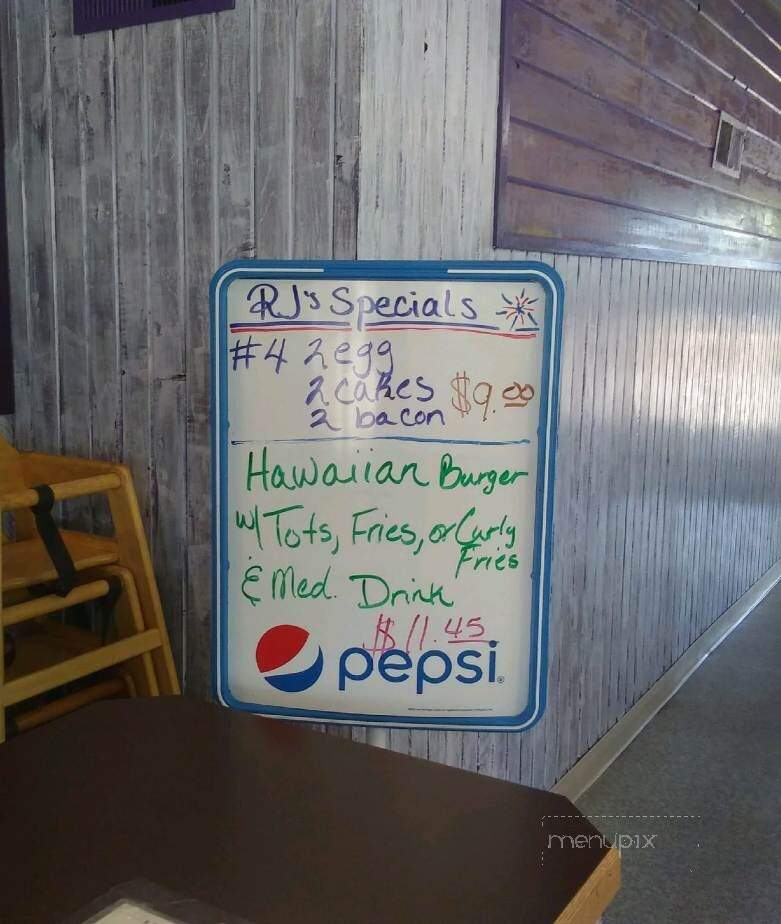 RJ's Specials
#4 2 egg
2 cakes $9.00
2 bacon
Hawaiian Burger
w/ Tots, Fries, or Curly
Fries
& Med. Drink
$11.45
pepsi
menupix